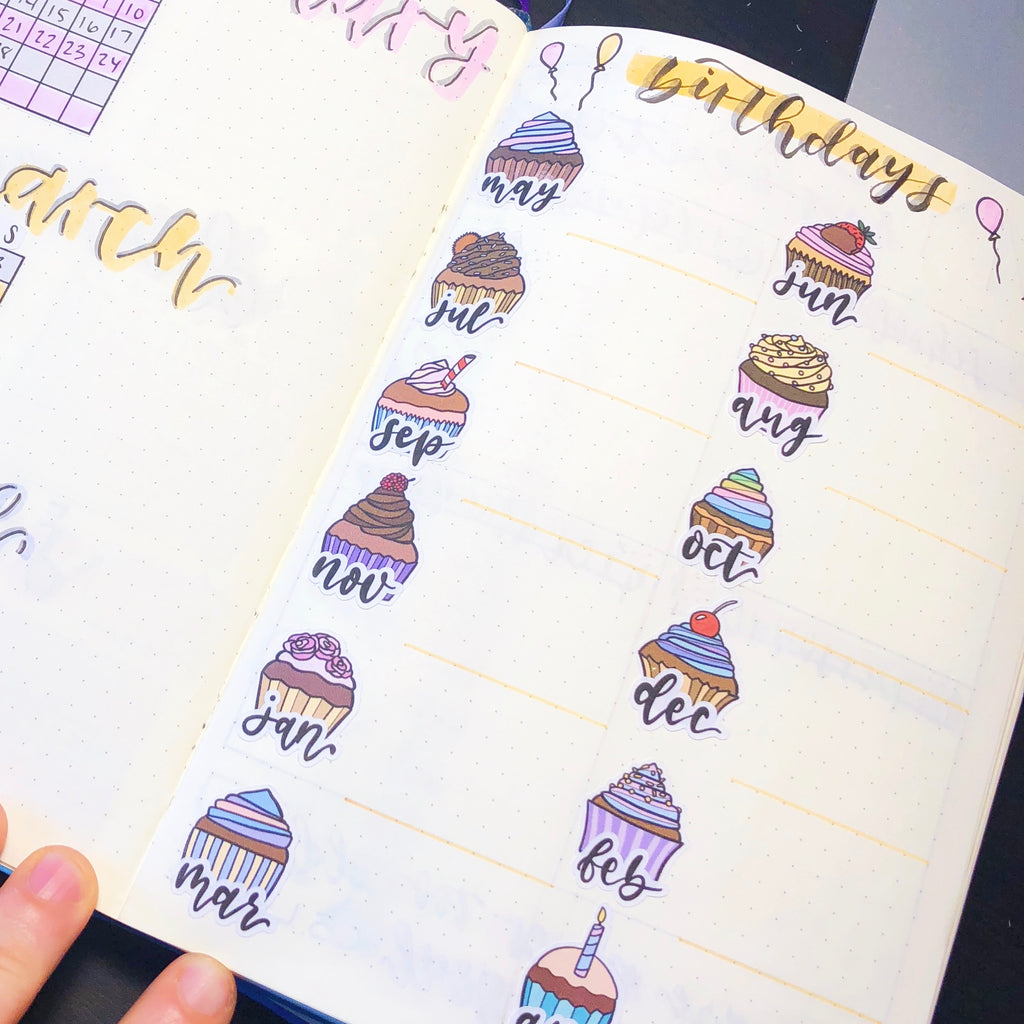 10
14 15 16 17
21 22 23 24
uary
arch
S
birthdays
may
jun
jul
aug
sep
oct
nov
dec
jan
feb
mar